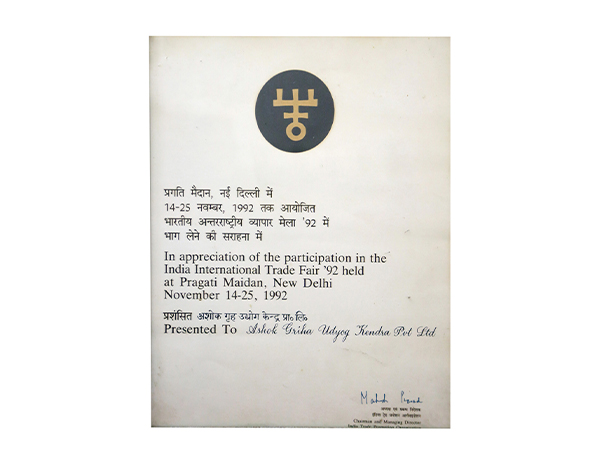 प्रगति मैदान, नई दिल्ली में
14-25 नवम्बर, 1992 तक आयोजित
भारतीय अन्तरराष्ट्रीय व्यापार मेला '92 में
भाग लेने की सराहना में
In appreciation of the participation in the
India International Trade Fair '92 held
at Pragati Maidan, New Delhi
November 14-25, 1992
प्रशंसित अशोक गृह उधोग केन्द्र प्रा॰लि॰
Presented To Ashok Griha Udyog Kendra Pvt Ltd
अध्यक्ष एवं प्रबन्ध निदेशक
Chairman and Managing Director
India Trade Promotion Organisation